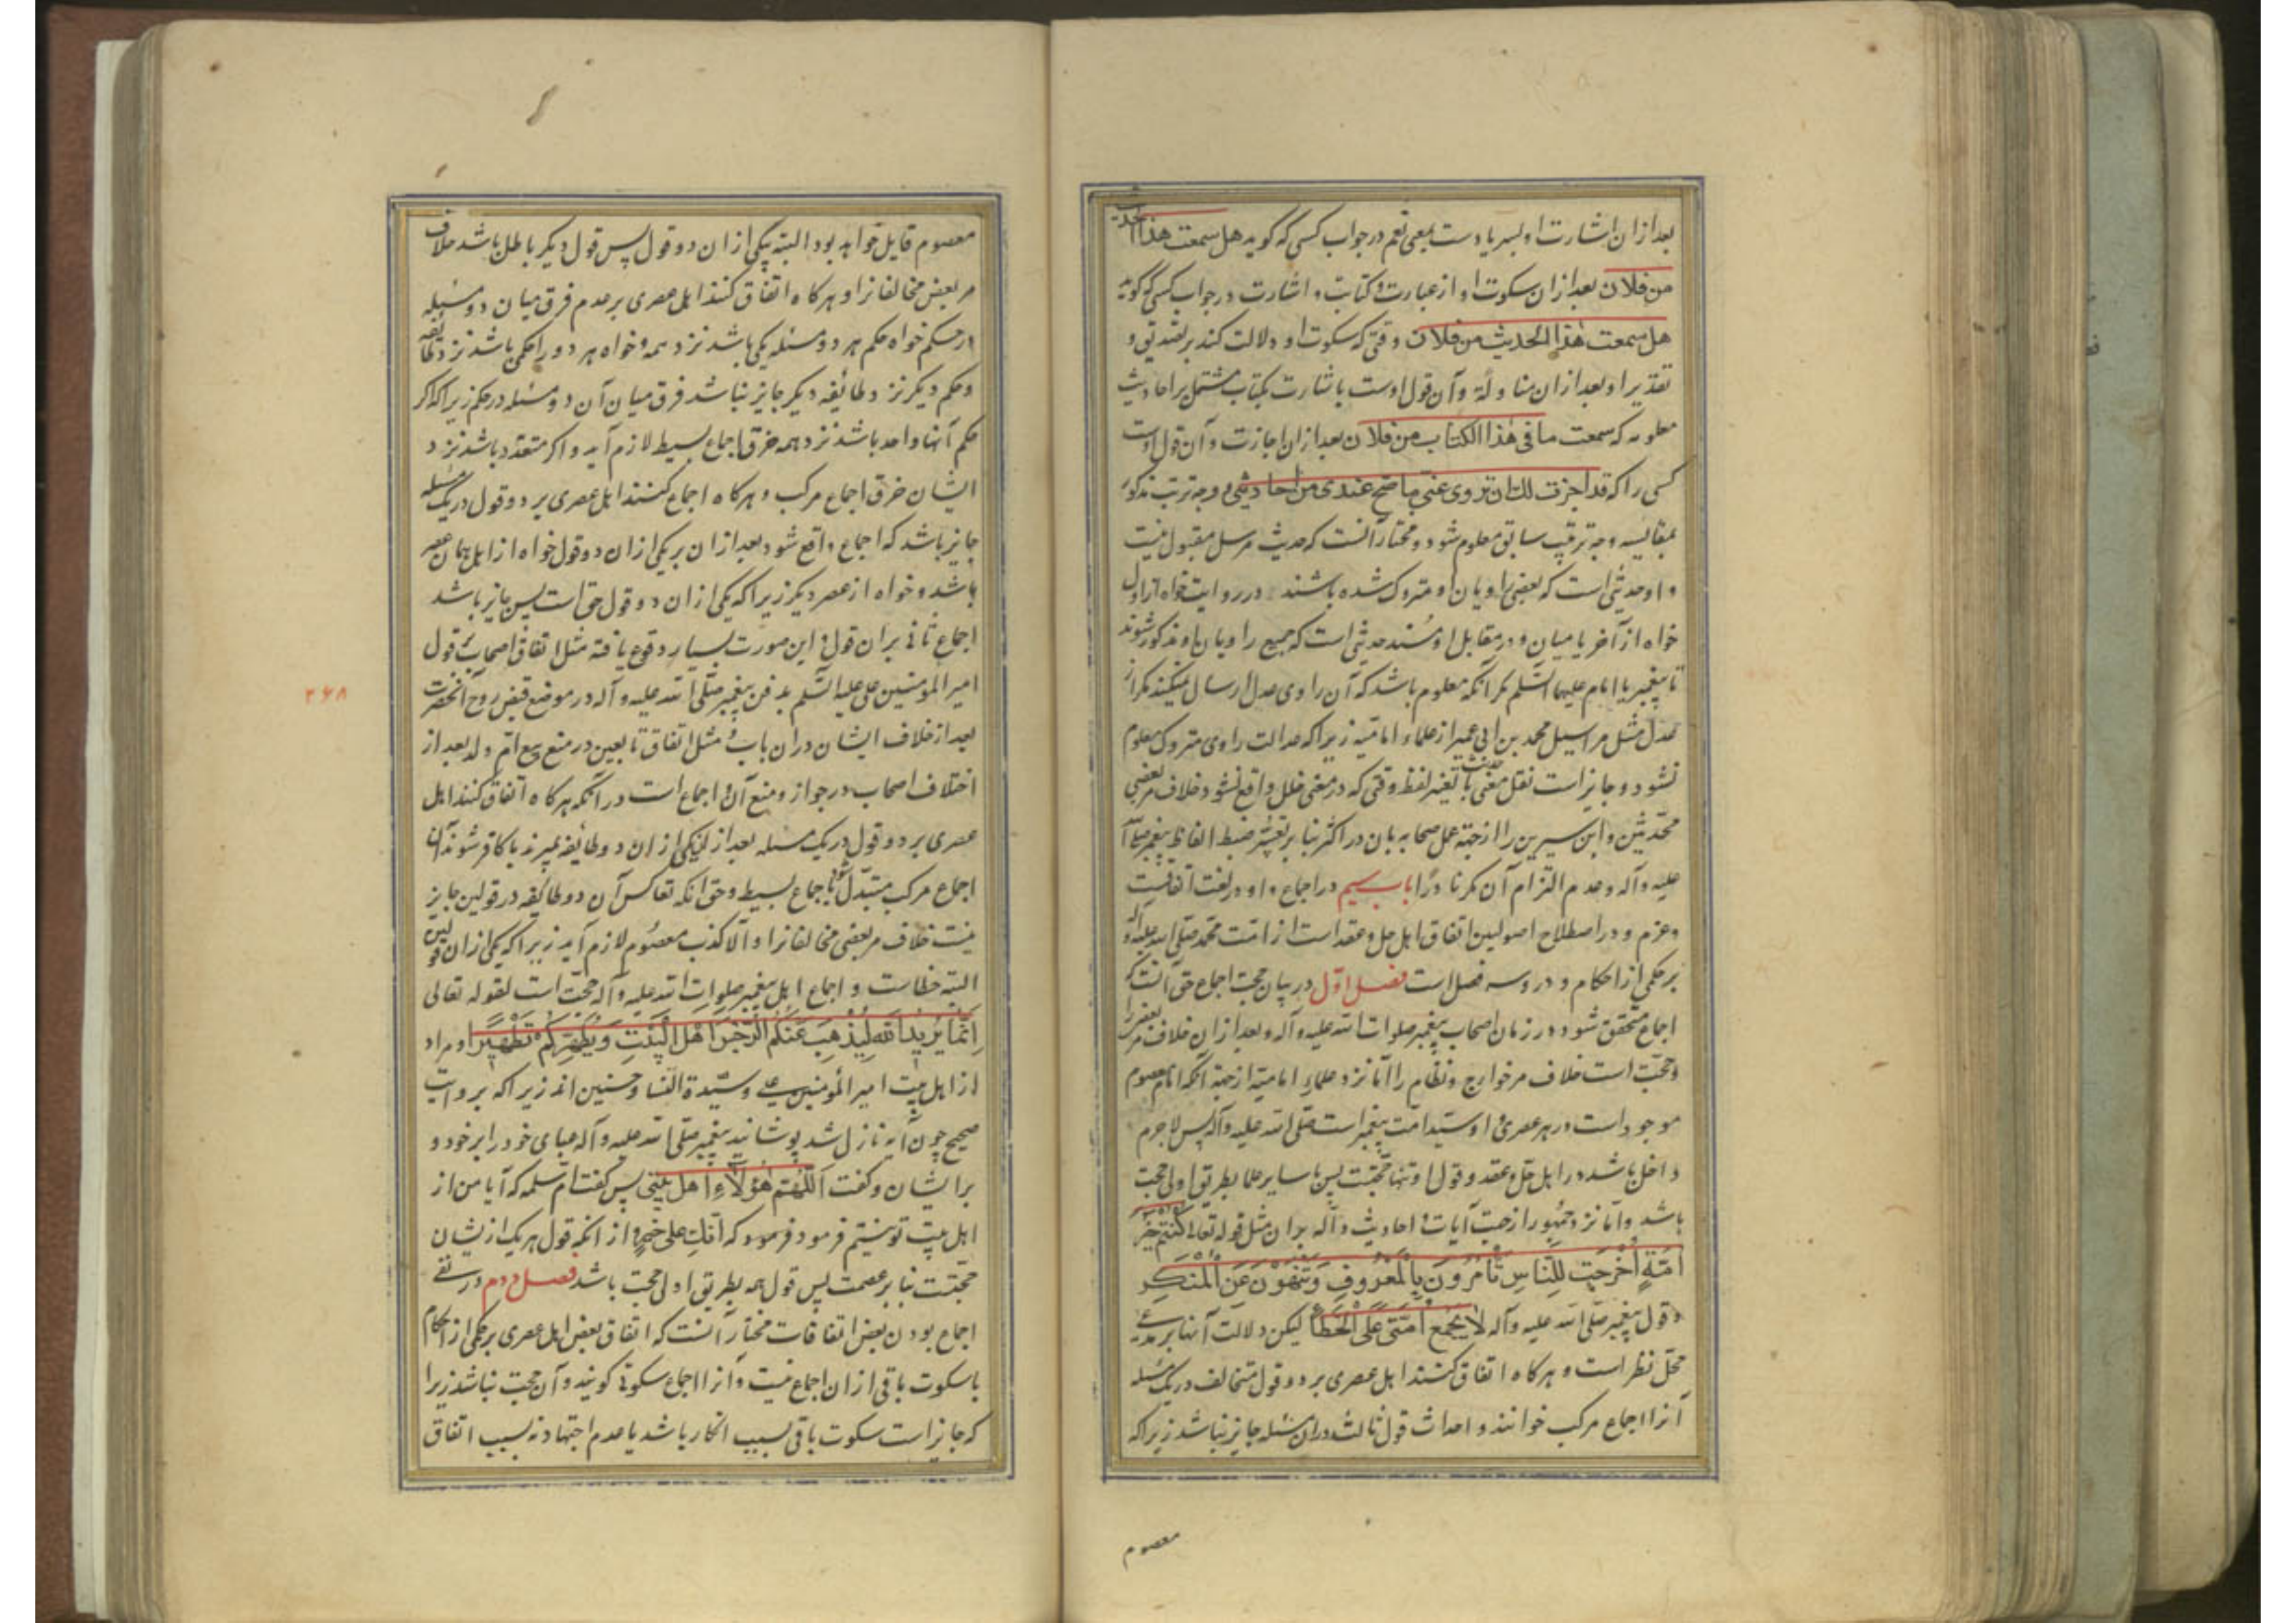 بعد ازان اشارت او بسر یا دست بمعنی نعم در جواب کسی که گوید هل سمعت هذا الحدیث
من فلان بعد ازان سکوت او از عبارت و کتابت و اشارت در جواب کسی که گوید
هل سمعت هذا الحدیث من فلان وقتی که سکوت او دلالت کند بر تصدیق و
تقریر او بعد ازان مناولة و آن قول اوست باشارت بکتاب مشتمل بر احادیث
معلومه که سمعت ما فی هذا الکتاب من فلان بعد ازان اجازت و آن قول اوست
کسی را که قد اجزت لک ان تروی عنی ما صح عندی من احادیثی و وجه ترتب مذکور
بمقایسه وجه ترتیب سابق معلوم شود و مختار آنست که حدیث مرسل مقبول نیست
و او حدیثی است که بعضی راویان او متروک شده باشند در روایت خواه از اول
خواه از آخر یا میان و در مقابل او مسند حدیثی است که جمیع راویان او مذکور شوند
تا پیغمبر یا امام علیهما السّلم مکر آنکه معلوم باشد که آن راوی عدل ارسال نمیکند مکر از
عدل مثل مراسیل محمد بن ابی عمیر از علماء امامیّه زیرا که عدالت راوی متروک معلوم
نشود و جایز است نقل حدیث بمعنی با تغیر لفظ وقتی که در معنی خلل واقع نشود خلاف مر بعضی
محدّثین و ابن سیرین را از جهة عمل صحابه بان در اکثر بنا بر تعسّر ضبط الفاظ پیغمبر صلی الله
علیه و آله و عدم التزام آن مکر نادرًا باب سیم در اجماع و او در لغت اتفاقست
و عزم و در اصطلاح اصولیین اتفاق اهل حل و عقد است از امت محمّد صلی الله علیه و آله
بر حکمی از احکام و درو سه فصل است فصل اوّل در بیان حجیت اجماع حق آنست که
اجماع متحقق شود در زمان اصحاب پیغمبر صلوات الله علیه و آله و بعد ازان خلاف مر بعضی را
و حجّت است خلاف مر خوارج و نظّام را امّا نزد علماء امامیّه از جهة آنکه امام معصوم
موجود است در هر عصری و او سیّد امّت پیغمبر است صلّی الله علیه و آله پس لاجرم
داخل باشد در اهل حل و عقد و قول او تنها حجّتست پس با سایر علما بطریق اولی حجّت
باشد و امّا نزد جمهور از جهت آیات و احادیث دآله بران مثل قوله تعالی کُنْتُمْ خَیْرَ
اُمَّةٍ اُخْرِجَتْ لِلنَّاسِ تَأْمُرُونَ بِالْمَعْرُوفِ وَتَنْهَوْنَ عَنِ الْمُنْکَرِ
و قول پیغمبر صلّی الله علیه و آله لا یجمع امّتی علی الخطأ لیکن دلالت آنها بر مدعی
محلّ نظر است و هرکاه اتفاق کنند اهل عصری بر دو قول متخالف در یک مسئله
آنرا اجماع مرکب خوانند و احداث قول ثالث دران مسئله جایز نباشد زیرا که
معصوم
معصوم قایل خواهد بود البته بیکی ازان دو قول پس قول دیکر باطل باشد خلاف
مر بعض مخالفانرا و هرکاه اتفاق کنند اهل عصری بر عدم فرق میان دو مسئله
در حکم خواه حکم هر دو مسئله یکی باشد نزد همه و خواه هر دو را حکمی باشد نزد طائفه
و حکم دیکر نزد طائفه دیکر جایز نباشد فرق میان آن دو مسئله در حکم زیرا که اکر
حکم آنها واحد باشد نزد همه خرق اجماع بسیط لازم آید و اکر متعدّد باشد نزد
ایشان خرق اجماع مرکب و هرکاه اجماع کنند اهل عصری بر دو قول در یک مسئله
جایز باشد که اجماع واقع شود بعد ازان بر یکی ازان دو قول خواه از اهل همان عصر
باشد و خواه از عصر دیکر زیرا که یکی ازان دو قول حق است پس جایز باشد
اجماع ثانی بران قول و این صورت بسیار وقوع یافته مثل اتفاق اصحاب بر قول
امیر المؤمنین علی علیه السّلم بدفن پیغمبر صلّی الله علیه و آله در موضع قبض روح آنحضرت
بعد از خلاف ایشان دران باب و مثل اتفاق تابعین در منع بیع امّ ولد بعد از
اختلاف اصحاب در جواز و منع آن و اجماع است در آنکه هرکاه اتفاق کنند اهل
عصری بر دو قول در یک مسئله بعد ازان یکی ازان دو طائفه بمیرند یا کافر شوند آن
اجماع مرکب متبدّل شود باجماع بسیط و حق آنکه تعاکس آن دو طائفه در قولین جایز
نیست خلاف مر بعضی مخالفانرا و الّا کذب معصوم لازم آید زیرا که یکی ازان قولین
البته خطاست و اجماع اهل پیغمبر صلوات الله علیه و آله حجّت است لقوله تعالی
اِنَّمَا یُرِیدُ اللهُ لِیُذْهِبَ عَنْکُمُ الرِّجْسَ اَهْلَ الْبَیْتِ وَیُطَهِّرَکُمْ تَطْهِیرًا و مراد
از اهل بیت امیر المؤمنین علی و سیّدة النسا و حسنین اند زیرا که بروایت
صحیح چون آیه نازل شد پوشانید پیغمبر صلّی الله علیه و آله عبای خود را بر خود و
بر ایشان و کفت اللّهم هؤلاء اهل بیتی پس کفت امّ سلمه که آیا من از
اهل بیت تو نیستم فرمود که انّک علی خیر و از آنکه قول هر یک ازیشان
حجّتست بنا بر عصمت پس قول همه بطریق اولی حجت باشد فصل دوم در نفی
اجماع بودن بعض اتفاقات مختار آنست که اتفاق بعض اهل عصری بر حکمی از احکام
با سکوت باقی ازان اجماع نیست و آنرا اجماع سکوتی کویند و آن حجت نباشد زیرا
که جایز است سکوت باقی بسبب انکار باشد یا عدم اجتهاد نه بسبب اتفاق
۲۶۸